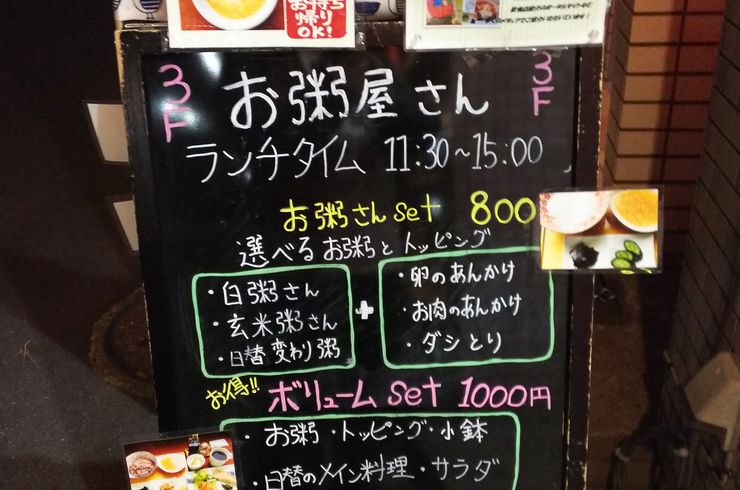 お持ち
帰り
OK!
3F
お粥屋さん
3F
ランチタイム 11:30～15:00
お粥さん set 800
選べるお粥とトッピング
・白粥さん
・玄米粥さん
・日替変わり粥
+
・卵のあんかけ
・お肉のあんかけ
・ダシとり
お得!! ボリューム set 1000円
・お粥・トッピング・小鉢
・日替のメイン料理・サラダ